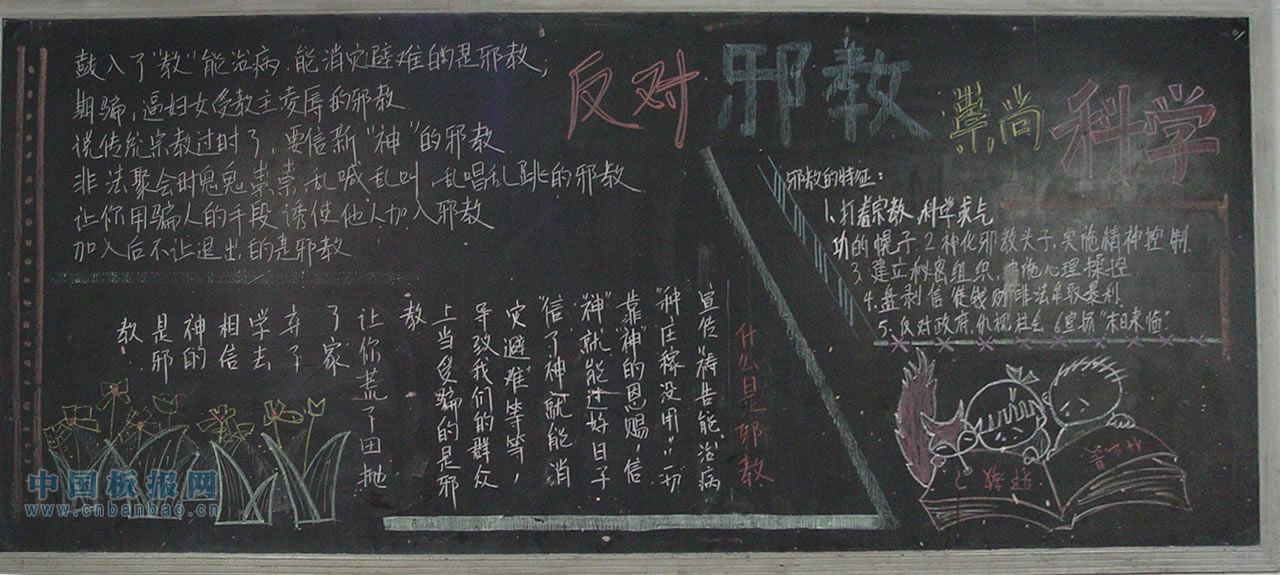 反对邪教 崇尚科学
鼓入了"教"能治病、能消灾避难的是邪教;
期骗,逼妇女受教主凌辱的邪教
说传统宗教过时了,要信新"神"的邪教
非法聚会时鬼鬼祟祟,乱喊乱叫,乱唱乱跳的邪教
让你用骗人的手段诱使他人加入邪教
加入后不让退出的是邪教
什么是邪教
宣传祷告能治病
"种庄稼没用""一切
靠"神"的恩赐,信
"神"就能过好日子
"信了神就能消
灾避难"等等,
导致我们的群众
上当受骗的是邪
教
让你荒了田抛
了家
弃了
学去
相信
神的
是邪
教
邪教的特征:
1、打着宗教、科学气
功的幌子 2神化邪教头子,实施精神控制
3、建立秘密组织,施心理操控
4.盘剥信徒钱财 非法牟取暴利
5、反对政府,仇视社会 6宣扬"末日来临"
中国板报网
www.cnbanbao.cn